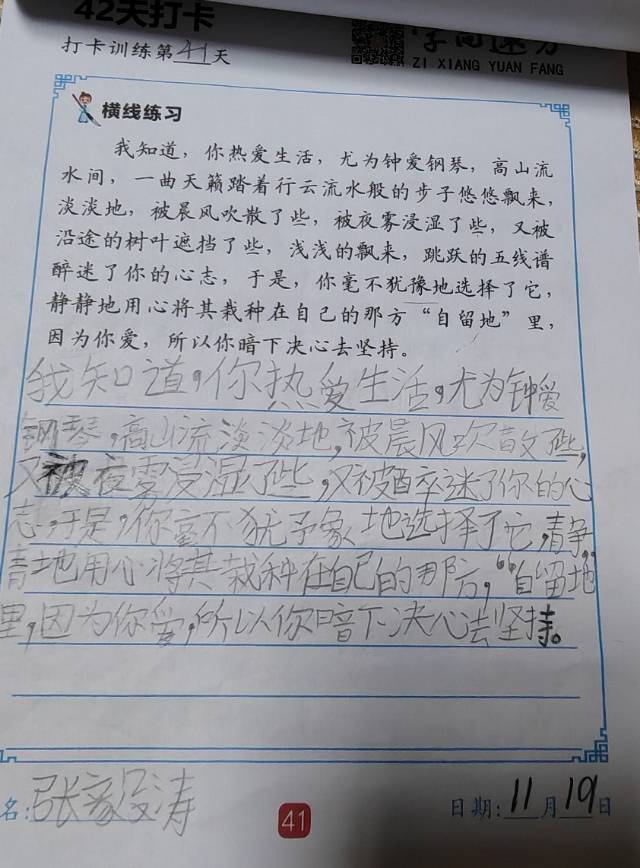 42天打卡
打卡训练第41天
ZI XIANG YUAN FANG
横线练习
我知道，你热爱生活，尤为钟爱钢琴，高山流
水间，一曲天籁踏着行云流水般的步子悠悠飘来，
淡淡地，被晨风吹散了些，被夜雾浸湿了些，又被
沿途的树叶遮挡了些，浅浅的飘来，跳跃的五线谱
醉迷了你的心志，于是，你毫不犹豫地选择了它，
静静地用心将其栽种在自己的那方“自留地”里，
因为你爱，所以你暗下决心去坚持。
我知道，你热爱生活，尤为钟爱
钢琴，高山流淡淡地，被晨风吹散了些，
又被夜雾浸湿了些，又被醉迷了你的心
志，于是，你毫不犹豫地选择了它，静
青地用心将其栽种在自己的那方，“自留地
里，因为你爱，所以你暗下决心去坚持。
名：张毅涛
41
日期：11月19日